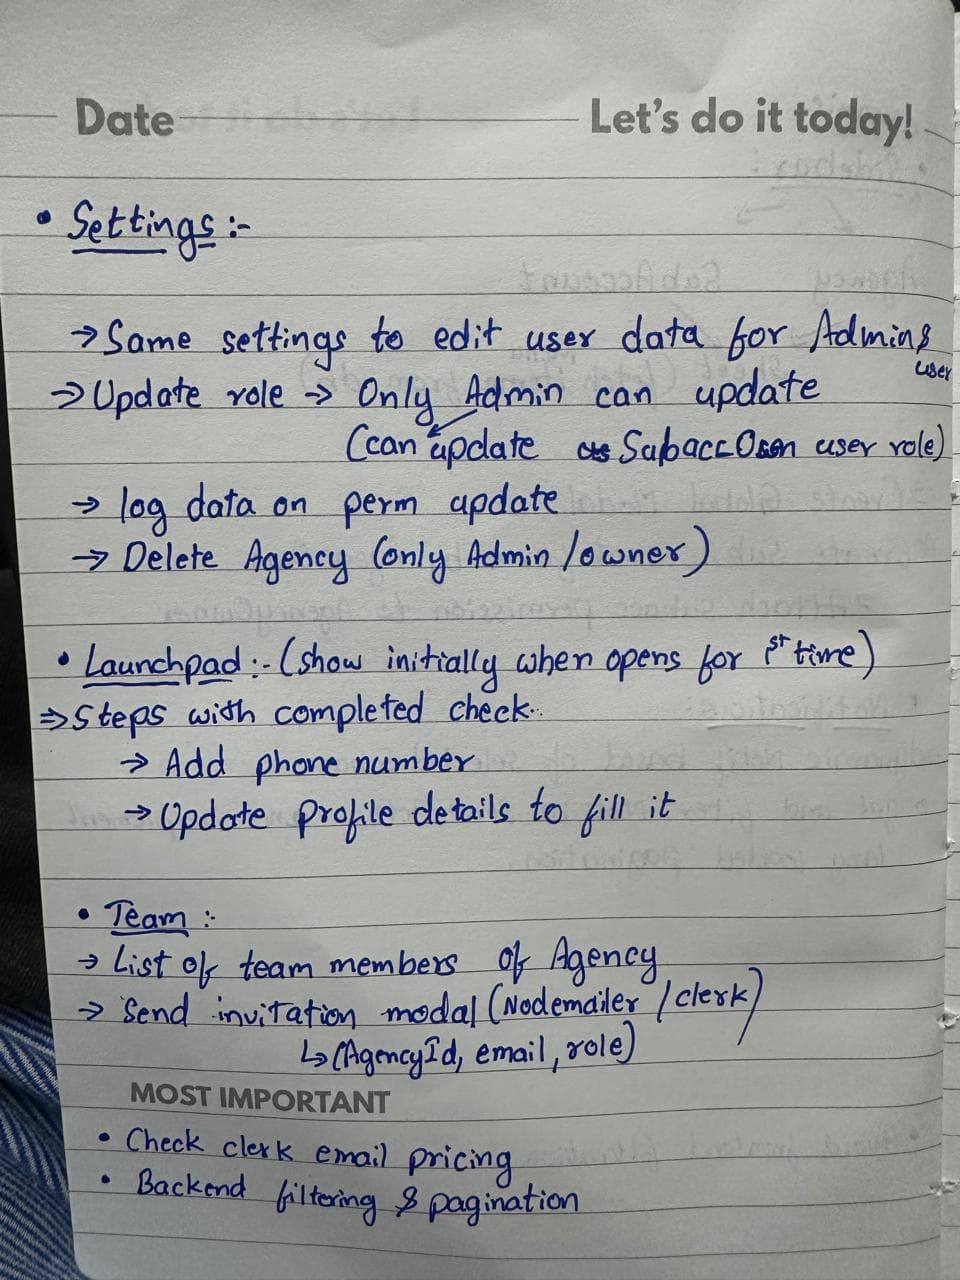 Date Let's do it today!
• Settings :-
→ Same settings to edit user data for Admins
user
→ Update role → Only Admin can update
(can update SubaccO user role)
→ log data on perm update
→ Delete Agency (only Admin / owner)
• Launchpad :- (show initially when opens for 1st time)
⇒ Steps with completed check..
→ Add phone number
→ Update profile details to fill it
• Team :-
→ List of team members of Agency
→ Send invitation modal (Nodemailer / clerk)
↳ (AgencyId, email, role)
MOST IMPORTANT
• Check clerk email pricing
• Backend filtering & pagination